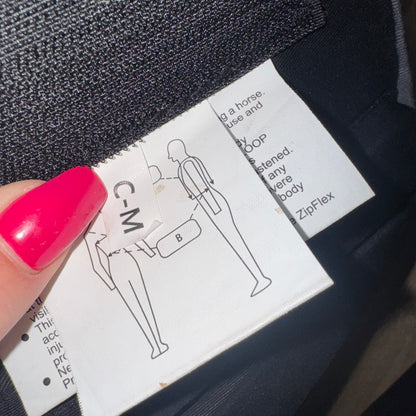 g a horse.
use and
OOP
stened.
any
vere
body
ZipFlex
C-M
B
visi
• Thi
acc
inju
pro
• Ne
Pr